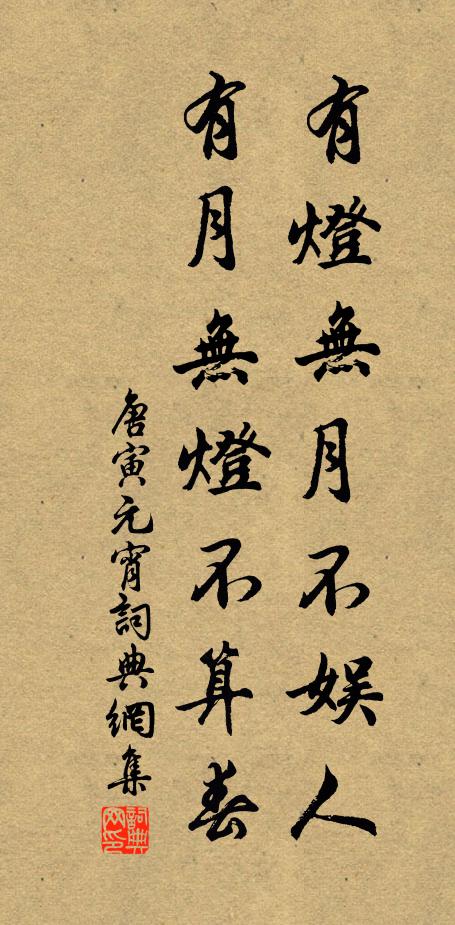 有燈無月不娛人
有月無燈不算春
唐寅元宵詞典網集
詞典網印